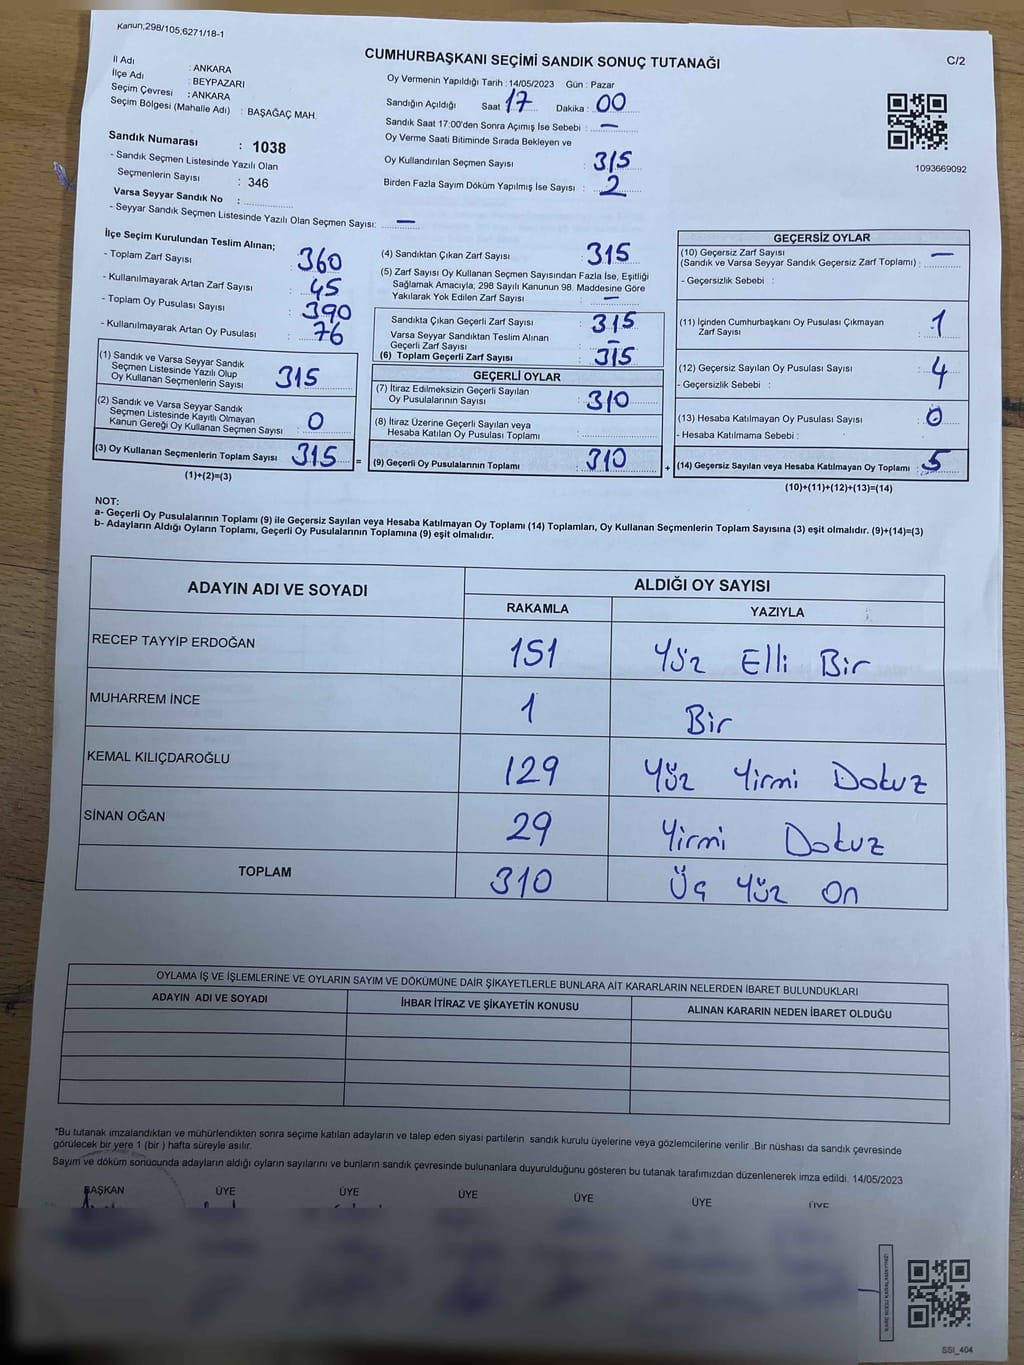 Kanun;298/105;6271/18-1
CUMHURBAŞKANI SEÇİMİ SANDIK SONUÇ TUTANAĞI
C/2
İl Adı : ANKARA
İlçe Adı : BEYPAZARI
Seçim Çevresi : ANKARA
Seçim Bölgesi (Mahalle Adı) : BAŞAĞAÇ MAH.
Sandık Numarası : 1038
- Sandık Seçmen Listesinde Yazılı Olan
Seçmenlerin Sayısı : 346
Varsa Seyyar Sandık No :
- Seyyar Sandık Seçmen Listesinde Yazılı Olan Seçmen Sayısı: —
Oy Vermenin Yapıldığı Tarih : 14/05/2023 Gün : Pazar
Sandığın Açıldığı Saat 17 Dakika : 00
Sandık Saat 17:00'den Sonra Açımış İse Sebebi : —
Oy Verme Saati Bitiminde Sırada Bekleyen ve
Oy Kullandırılan Seçmen Sayısı : 315
Birden Fazla Sayım Döküm Yapılmış İse Sayısı : 2
1093669092
İlçe Seçim Kurulundan Teslim Alınan;
- Toplam Zarf Sayısı : 360
- Kullanılmayarak Artan Zarf Sayısı : 45
- Toplam Oy Pusulası Sayısı : 390
- Kullanılmayarak Artan Oy Pusulası : 76
(1) Sandık ve Varsa Seyyar Sandık
Seçmen Listesinde Yazılı Olup
Oy Kullanan Seçmenlerin Sayısı 315
(2) Sandık ve Varsa Seyyar Sandık
Seçmen Listesinde Kayıtlı Olmayan
Kanun Gereği Oy Kullanan Seçmen Sayısı : 0
(3) Oy Kullanan Seçmenlerin Toplam Sayısı 315 =
(1)+(2)=(3)
(4) Sandıktan Çıkan Zarf Sayısı : 315
(5) Zarf Sayısı Oy Kullanan Seçmen Sayısından Fazla İse, Eşitliği
Sağlamak Amacıyla; 298 Sayılı Kanunun 98. Maddesine Göre
Yakılarak Yok Edilen Zarf Sayısı : —
Sandıkta Çıkan Geçerli Zarf Sayısı : 315
Varsa Seyyar Sandıktan Teslim Alınan
Geçerli Zarf Sayısı : —
(6) Toplam Geçerli Zarf Sayısı : 315
GEÇERLİ OYLAR
(7) İtiraz Edilmeksizin Geçerli Sayılan
Oy Pusulalarının Sayısı : 310
(8) İtiraz Üzerine Geçerli Sayılan veya
Hesaba Katılan Oy Pusulası Toplamı :
(9) Geçerli Oy Pusulalarının Toplamı : 310 +
GEÇERSİZ OYLAR
(10) Geçersiz Zarf Sayısı
(Sandık ve Varsa Seyyar Sandık Geçersiz Zarf Toplamı) : —
- Geçersizlik Sebebi :
(11) İçinden Cumhurbaşkanı Oy Pusulası Çıkmayan
Zarf Sayısı : 1
(12) Geçersiz Sayılan Oy Pusulası Sayısı : 4
- Geçersizlik Sebebi :
(13) Hesaba Katılmayan Oy Pusulası Sayısı : 0
- Hesaba Katılmama Sebebi :
(14) Geçersiz Sayılan veya Hesaba Katılmayan Oy Toplamı : 5
(10)+(11)+(12)+(13)=(14)
NOT:
a- Geçerli Oy Pusulalarının Toplamı (9) ile Geçersiz Sayılan veya Hesaba Katılmayan Oy Toplamı (14) Toplamları, Oy Kullanan Seçmenlerin Toplam Sayısına (3) eşit olmalıdır. (9)+(14)=(3)
b- Adayların Aldığı Oyların Toplamı, Geçerli Oy Pusulalarının Toplamına (9) eşit olmalıdır.
ADAYIN ADI VE SOYADI ALDIĞI OY SAYISI
RAKAMLA YAZIYLA
RECEP TAYYİP ERDOĞAN 151 Yüz Elli Bir
MUHARREM İNCE 1 Bir
KEMAL KILIÇDAROĞLU 129 Yüz Yirmi Dokuz
SİNAN OĞAN 29 Yirmi Dokuz
TOPLAM 310 Üç Yüz On
OYLAMA İŞ VE İŞLEMLERİNE VE OYLARIN SAYIM VE DÖKÜMÜNE DAİR ŞİKAYETLERLE BUNLARA AİT KARARLARIN NELERDEN İBARET BULUNDUKLARI
ADAYIN ADI VE SOYADI İHBAR İTİRAZ VE ŞİKAYETİN KONUSU ALINAN KARARIN NEDEN İBARET OLDUĞU
*Bu tutanak imzalandıktan ve mühürlendikten sonra seçime katılan adayların ve talep eden siyasi partilerin sandık kurulu üyelerine veya gözlemcilerine verilir .Bir nüshası da sandık çevresinde
görülecek bir yere 1 (bir ) hafta süreyle asılır.
Sayım ve döküm sonucunda adayların aldığı oyların sayılarını ve bunların sandık çevresinde bulunanlara duyurulduğunu gösteren bu tutanak tarafımızdan düzenlenerek imza edildi. 14/05/2023
BAŞKAN ÜYE ÜYE ÜYE ÜYE ÜYE ÜYE
SSI_404